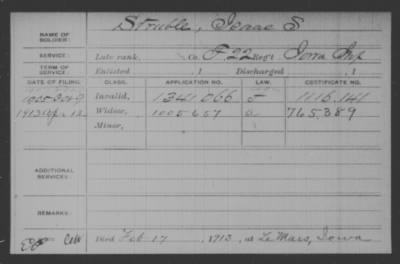 NAME OF SOLDIER: Struble, Isaac S
SERVICE: Late rank, Co. F. 22 Reg't Iowa Inf
TERM OF SERVICE: Enlisted , 1 Discharged , 1
DATE OF FILING. CLASS. APPLICATION NO. LAW. CERTIFICATE NO.
Invalid, 1341066 1116.141
1913 Widow, 1005657 765,389
Minor,
ADDITIONAL SERVICES:
REMARKS:
Died Feb 17, 1913, at Le Mars, Iowa